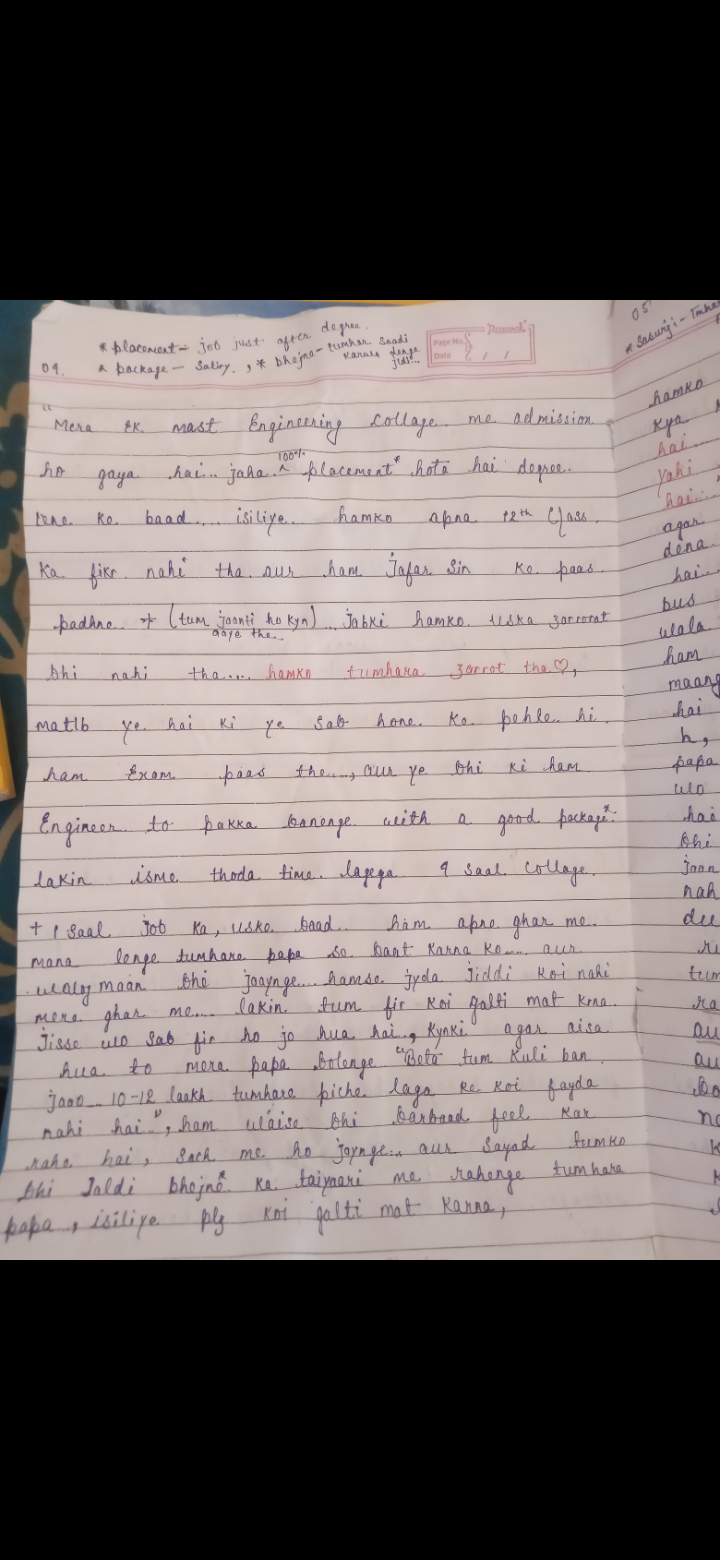 04.
* placement - job just after degree.
* package - Salry. , * bhejne - tumhar Saadi
karwa denge
jldi...
Page No.
Date / /
"Mera Ek mast Engineering Collage me admission
ho gaya hai... jaha ^ 100% placement* hota hai degree.
lene ke baad.... isiliye. hamko apna 12th Class.
Ka fikr nahi tha aur ham Jafar Sir ke paas
padhne aaye the.. (tum jaanti ho kyn)... Jabki hamko uska zarrorat
bhi nahi tha.... hamko tumhara zarrot tha♡,
matlb ye hai ki ye Sab hone. Ke pehle hi
ham Exam paas the...., aur ye bhi ki ham
Engineer to pakka banenge with a good package*.
lakin isme thoda time. lagega 4 Saal Collage.
+ 1 Saal Job ka, uske baad.. ham apne ghar me.
mana lenge tumhare papa se baat karna ko.... aur
maan bhi jaaynge... hamse jyda Jiddi Koi nahi
mere ghar me.... lakin tum fir Koi galti mat krna.
Jisse wo Sab fir ho jo hua hai., kynki agar aisa
hua to mera papa bolenge "Beta tum Kuli ban
jaoo.. 10-12 laakh tumhare piche laga ke Koi fayda
nahi hai..", ham waise bhi barbaad feel Kar
rahe hai, Sach me ho jaynge.. aur Sayad tumko
bhi Jaldi bhejne* ke taiyaari me rahenge tumhara
papa, isiliye plz Koi galti mat Karna,
05
* Sasurji -
hamko
kya
hai.
yahi
hai...
agar
dena
hai..
bus
wala
ham
maang
hai
h,
papa
wo
hai
bhi
jaan
nah
tum